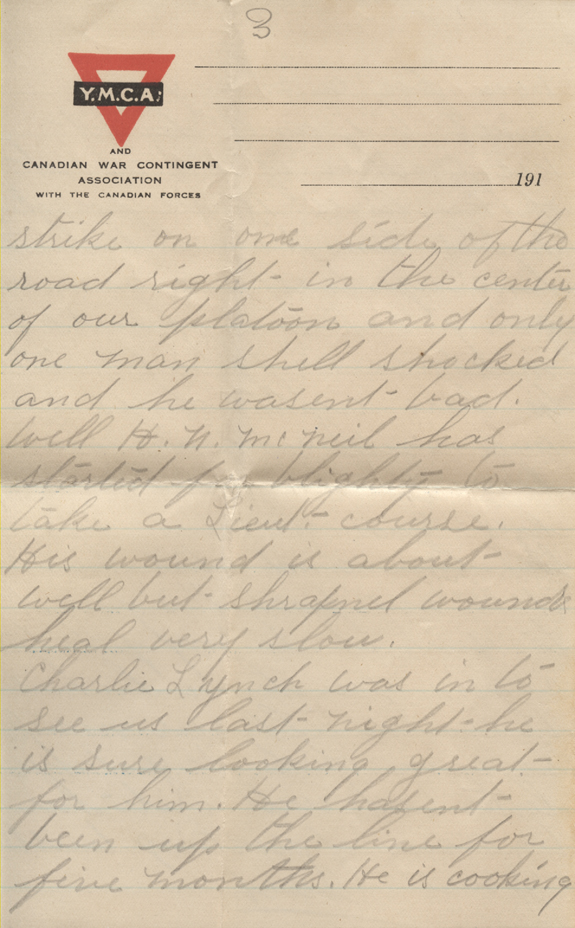 3
Y.M.C.A.
AND
CANADIAN WAR CONTINGENT
ASSOCIATION
WITH THE CANADIAN FORCES
191
strike on one side of the
road right in the center
of our platoon and only
one man shell shocked
and he wasent bad.
Well H. N. McNeil has
started for blighty to
take a Lieut. course.
His wound is about
well but shrapnel wounds
heal very slow.
Charlie Lynch was in to
see us last night he
is sure looking great
for him. He hasent
been up the line for
five months. He is cooking